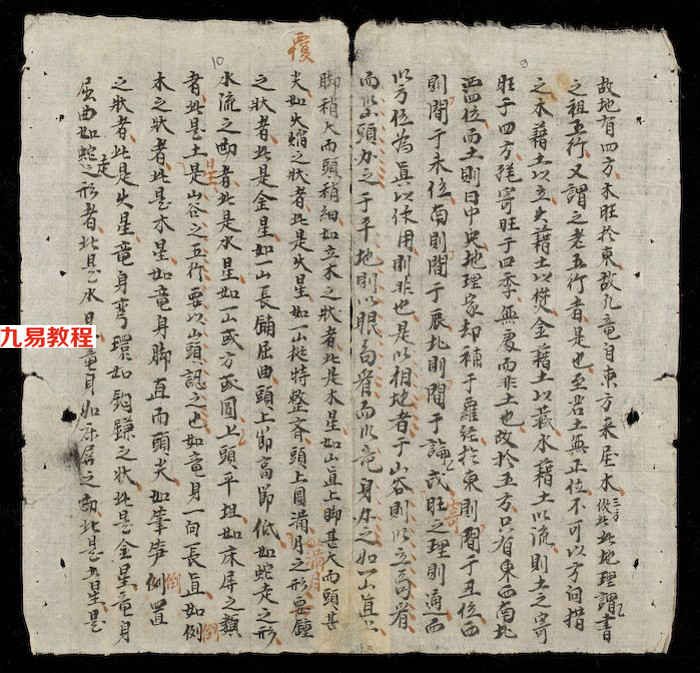 9
故地有四方木旺於東故凡竜自東方来屋水三方倣此此地理謂書
之祖五行又謂之老五行者是也至若土無正位不可以方向措
之木藉土以立火藉土以熒金藉土以藏水藉土以流則土之寄
旺于四方旄寄旺于四季無處而非土也故於五方只有東西南北
四位而土則曰中央地理家却補于羅經於東則閏于丑位西
則閏于未位南則閏于辰北則閏于論戌旺之理則通而
以方位為眞以体用則非也是以相地者于山谷則以立高者
而以頭加之于平地則以眼高者而以竜身加之如一山直上
10
覆
脚稍大而頭稍細如立木之状者此是木星如山直上脚甚大而頭甚
尖如火焰之状者此是火星如一山挺特整斉頭上圓满月之形要鍾
满月
之状者此是金星如一山長鋪屈曲頭上節高節低如蛇走之形
水流之者此是水星如一山或方或圓上頭平坦如床屏之類
倒
者此是土是山谷之五行要以山頭認之也如竜身一向長直如倒
星
木之状者此是木星如竜身脚直而頭尖如筆笋倒置
倒
之状者此是火星竜身弯環如鈎鎌之状此是金星竜身
屈曲如蛇之形者此是水星竜身如之此是土星是
走
九易教程